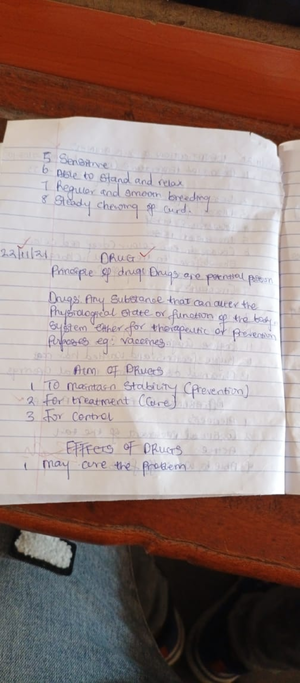 5 Sensative
6 Able to stand and relax
7 Regular and smooth breeding
8 Steady chewing of curd.
22/11/21
DRUG
Principle of drugs Drugs are potential poison
Drugs: Any substance that can alter the
Physiological state or function of the body
System either for therapeutic or prevention
Purposes eg: vaccines.
Aim of DRUGS
1 To maintain stability (prevention)
2 For treatment (Cure)
3 For control
EFFECTS OF DRUGS
1 may cure the problem